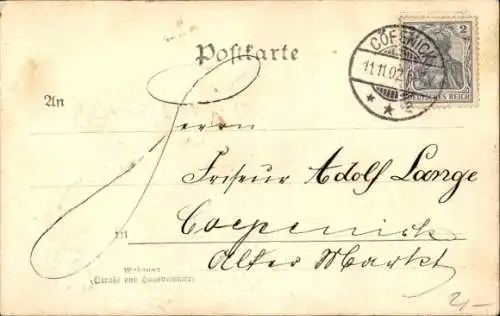 Postkarte
2
CÖPENICK
11.11.02.
DEUTSCHES REICH
An
Herrn
Friseur Adolf Lange
in
Coepenick
Alter Markt
Wohnung
(Straße und Hausnummer)
2,-